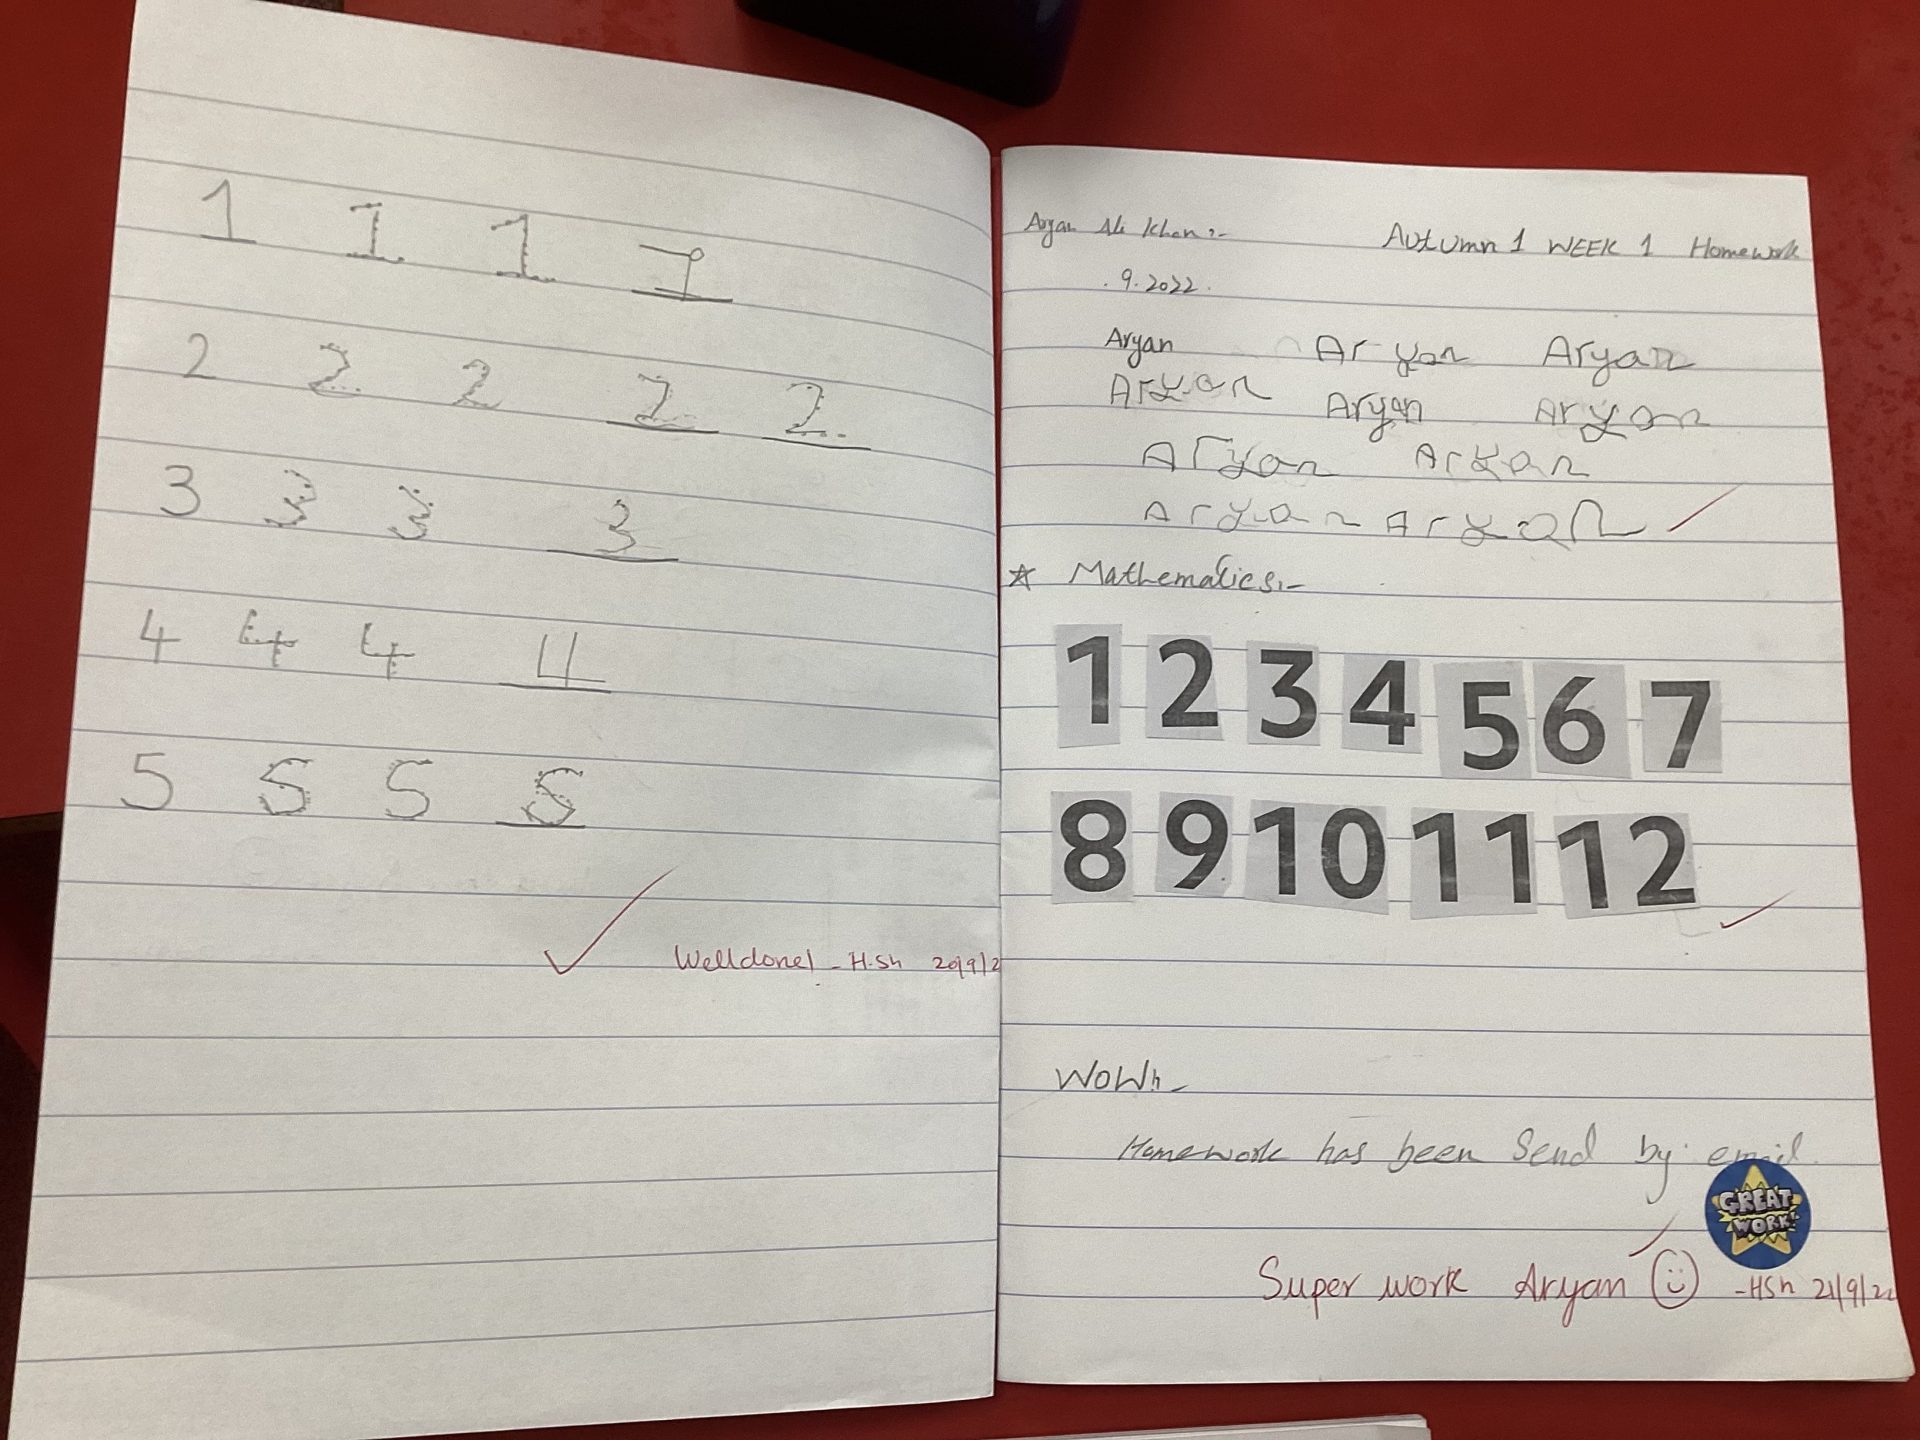 1 1 1 1
2 2 2 2 2
3 3 3 3
4 4 4 4
5 5 5 5
Welldone! - H.Sh 20/9/2
Aryan Ali Khan :-
Autumn 1 WEEK 1 Homework
.9.2022.
Aryan Aryan Aryan
Aryan Aryan Aryan
Aryan Aryan
Aryan Aryan
☆ Mathematics:-
1 2 3 4 5 6 7
8 9 10 11 12
WOW!-
Homework has been Send by email.
GREAT
WORK!
Super work Aryan ☺ -HSh 21/9/22